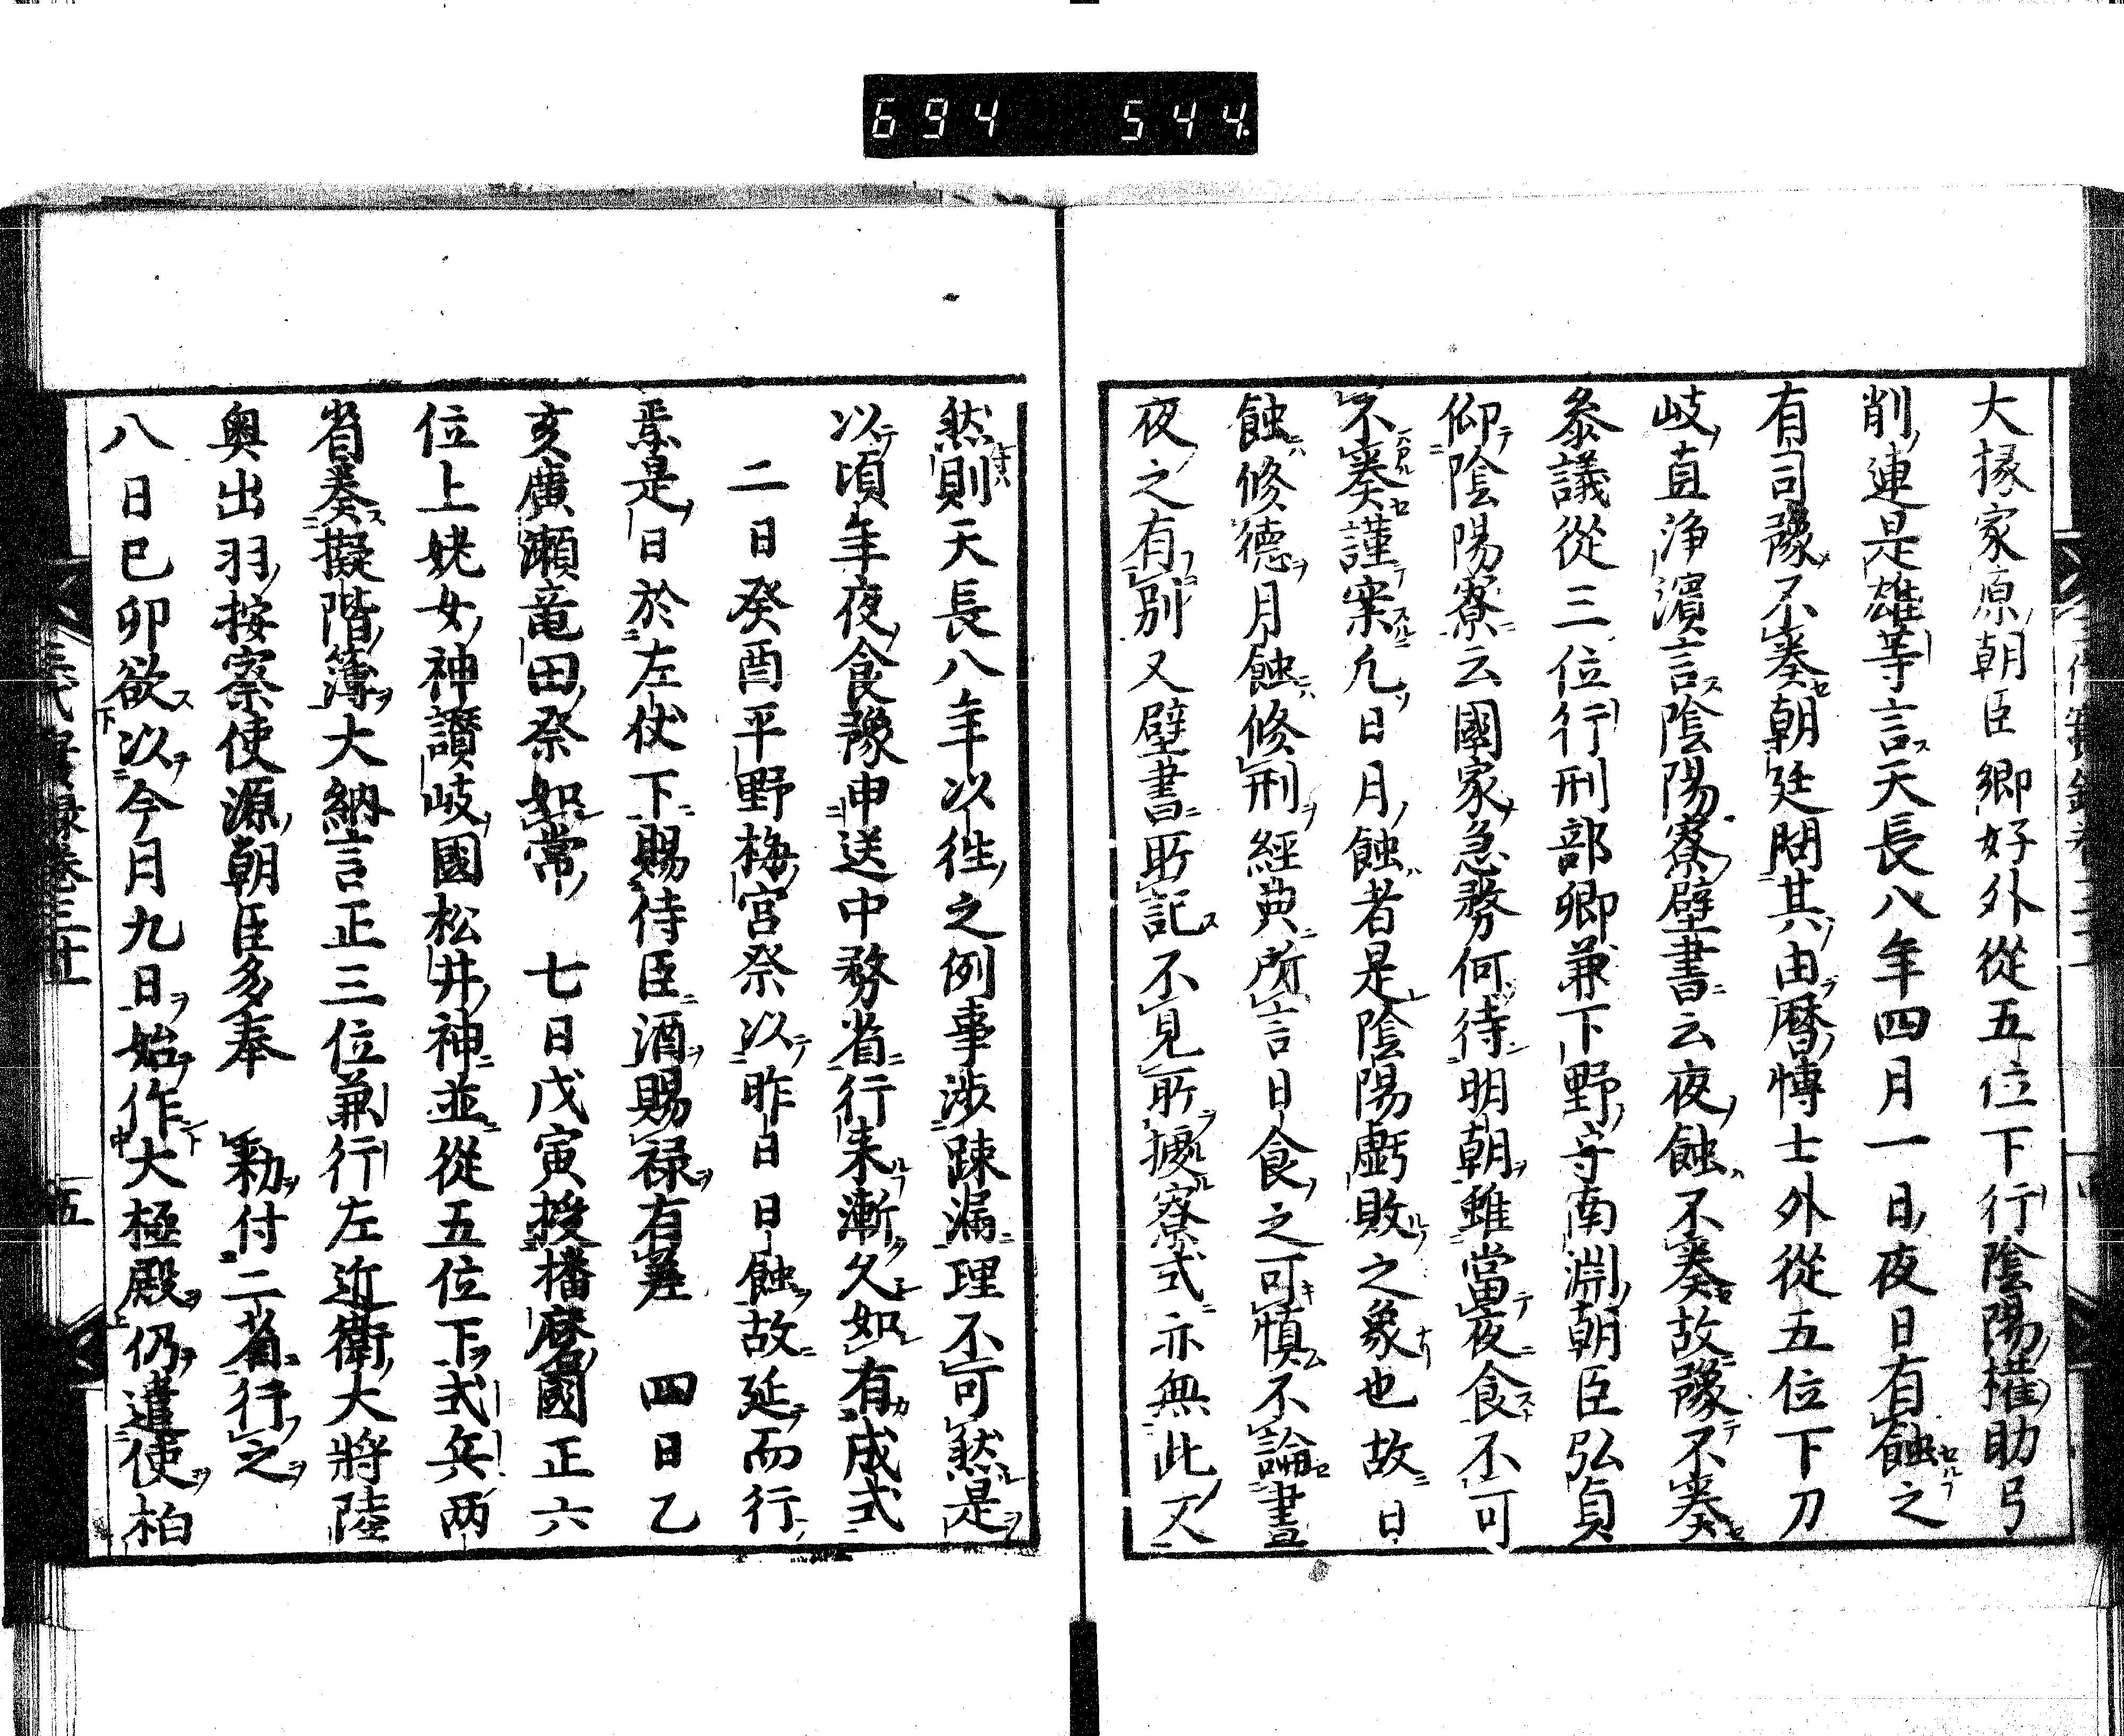 694 544
大掾家原朝臣郷好外從五位下行陰陽權助弓
削連是雄等言天長八年四月一日夜日有蝕之
有司豫不奏朝廷問其由曆博士外從五位下刀
岐直浄濵言陰陽寮壁書云夜蝕不奏故豫不奏
叅議從三位行刑部卿兼下野守南淵朝臣弘貞
仰陰陽寮云國家急務何待明朝雖當夜食不可
不奏謹案凢日月蝕者是陰陽虧敗之象也故日
蝕修德月蝕修刑經典所言日食之可愼不論晝
夜之有別又壁書所記不見所據寮式亦無此文
然則天長八年以徃之例事渉踈漏理不可然是
以頃年夜食豫申送中務省行来漸久如有成式
二日癸酉平野梅宮祭以昨日日蝕故延而行
焉是日於左仗下賜侍臣酒賜禄有差 四日乙
亥廣瀬竜田祭如常 七日戊寅授播磨國正六
位上姥女神讃岐國松井神並從五位下式兵两
省奏擬階簿大納言正三位兼行左近衛大將陸
奥出羽按察使源朝臣多奉 勅付二省行之
八日巳卯欲以今月九日始作大極殿仍遣使柏
三代實録卷三十 五